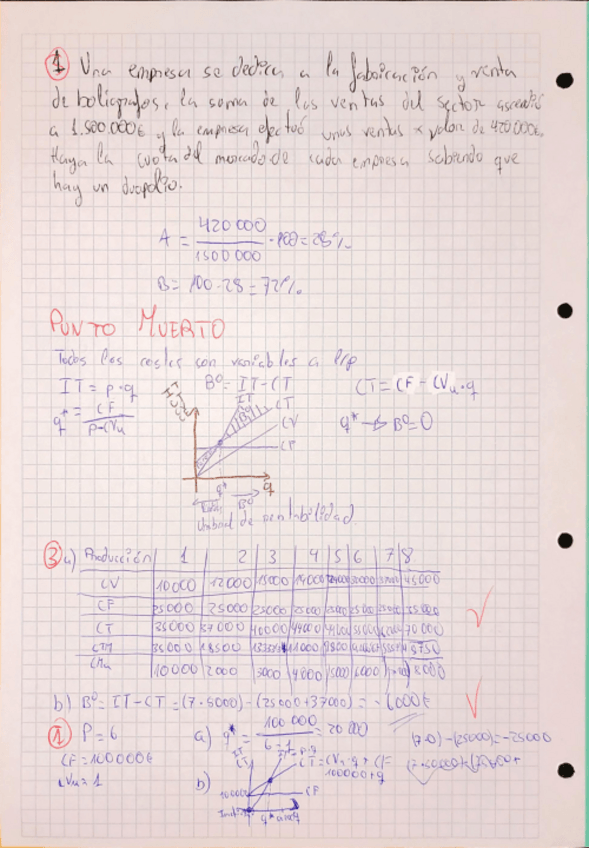 1 Una empresa se dedica a la fabricación y venta
de bolígrafos, la soma de las ventas del sector ascendió
a 1.500.000€ y la empresa efectuó unas ventas x valor de 420.000€.
Haya la cuota del mercado de cada empresa sabiendo que
hay un duopolio.
A = 420 000 / 1500 000 · 100 = 28%
B = 100 - 28 = 72%
PUNTO MUERTO
Todos los costes son variables a l/p
IT = p·q B° = IT - CT CT = CF - CVu·q
q* = CF / p-CVu q* → B° = 0
IT CT
CV
CF
q* q
B°
Umbral de rentabilidad
3 a) Producción 1 2 3 4 5 6 7 8
CV 10000 12000 15000 19000 30000 45000
CF 25000 25000 25000 25000 25000 25000 25000
CT 35000 37000 40000 44000 55000 70000
CTM 35000 18500 11000 9800 8750
CMa 10000 2000 3000 4000 5000 6000 8000
b) B° = IT - CT = (7·8000) - (25000 + 37000) = -6000€
1 P = 6 a) q* = 100 000 / 6-1 = 20 000 (7·0) - (25000) = -25000
CF = 100000€
CVu = 1
b) IT = p·q
CT = CVu·q + CF =
100000 + q
100000 CF
q*